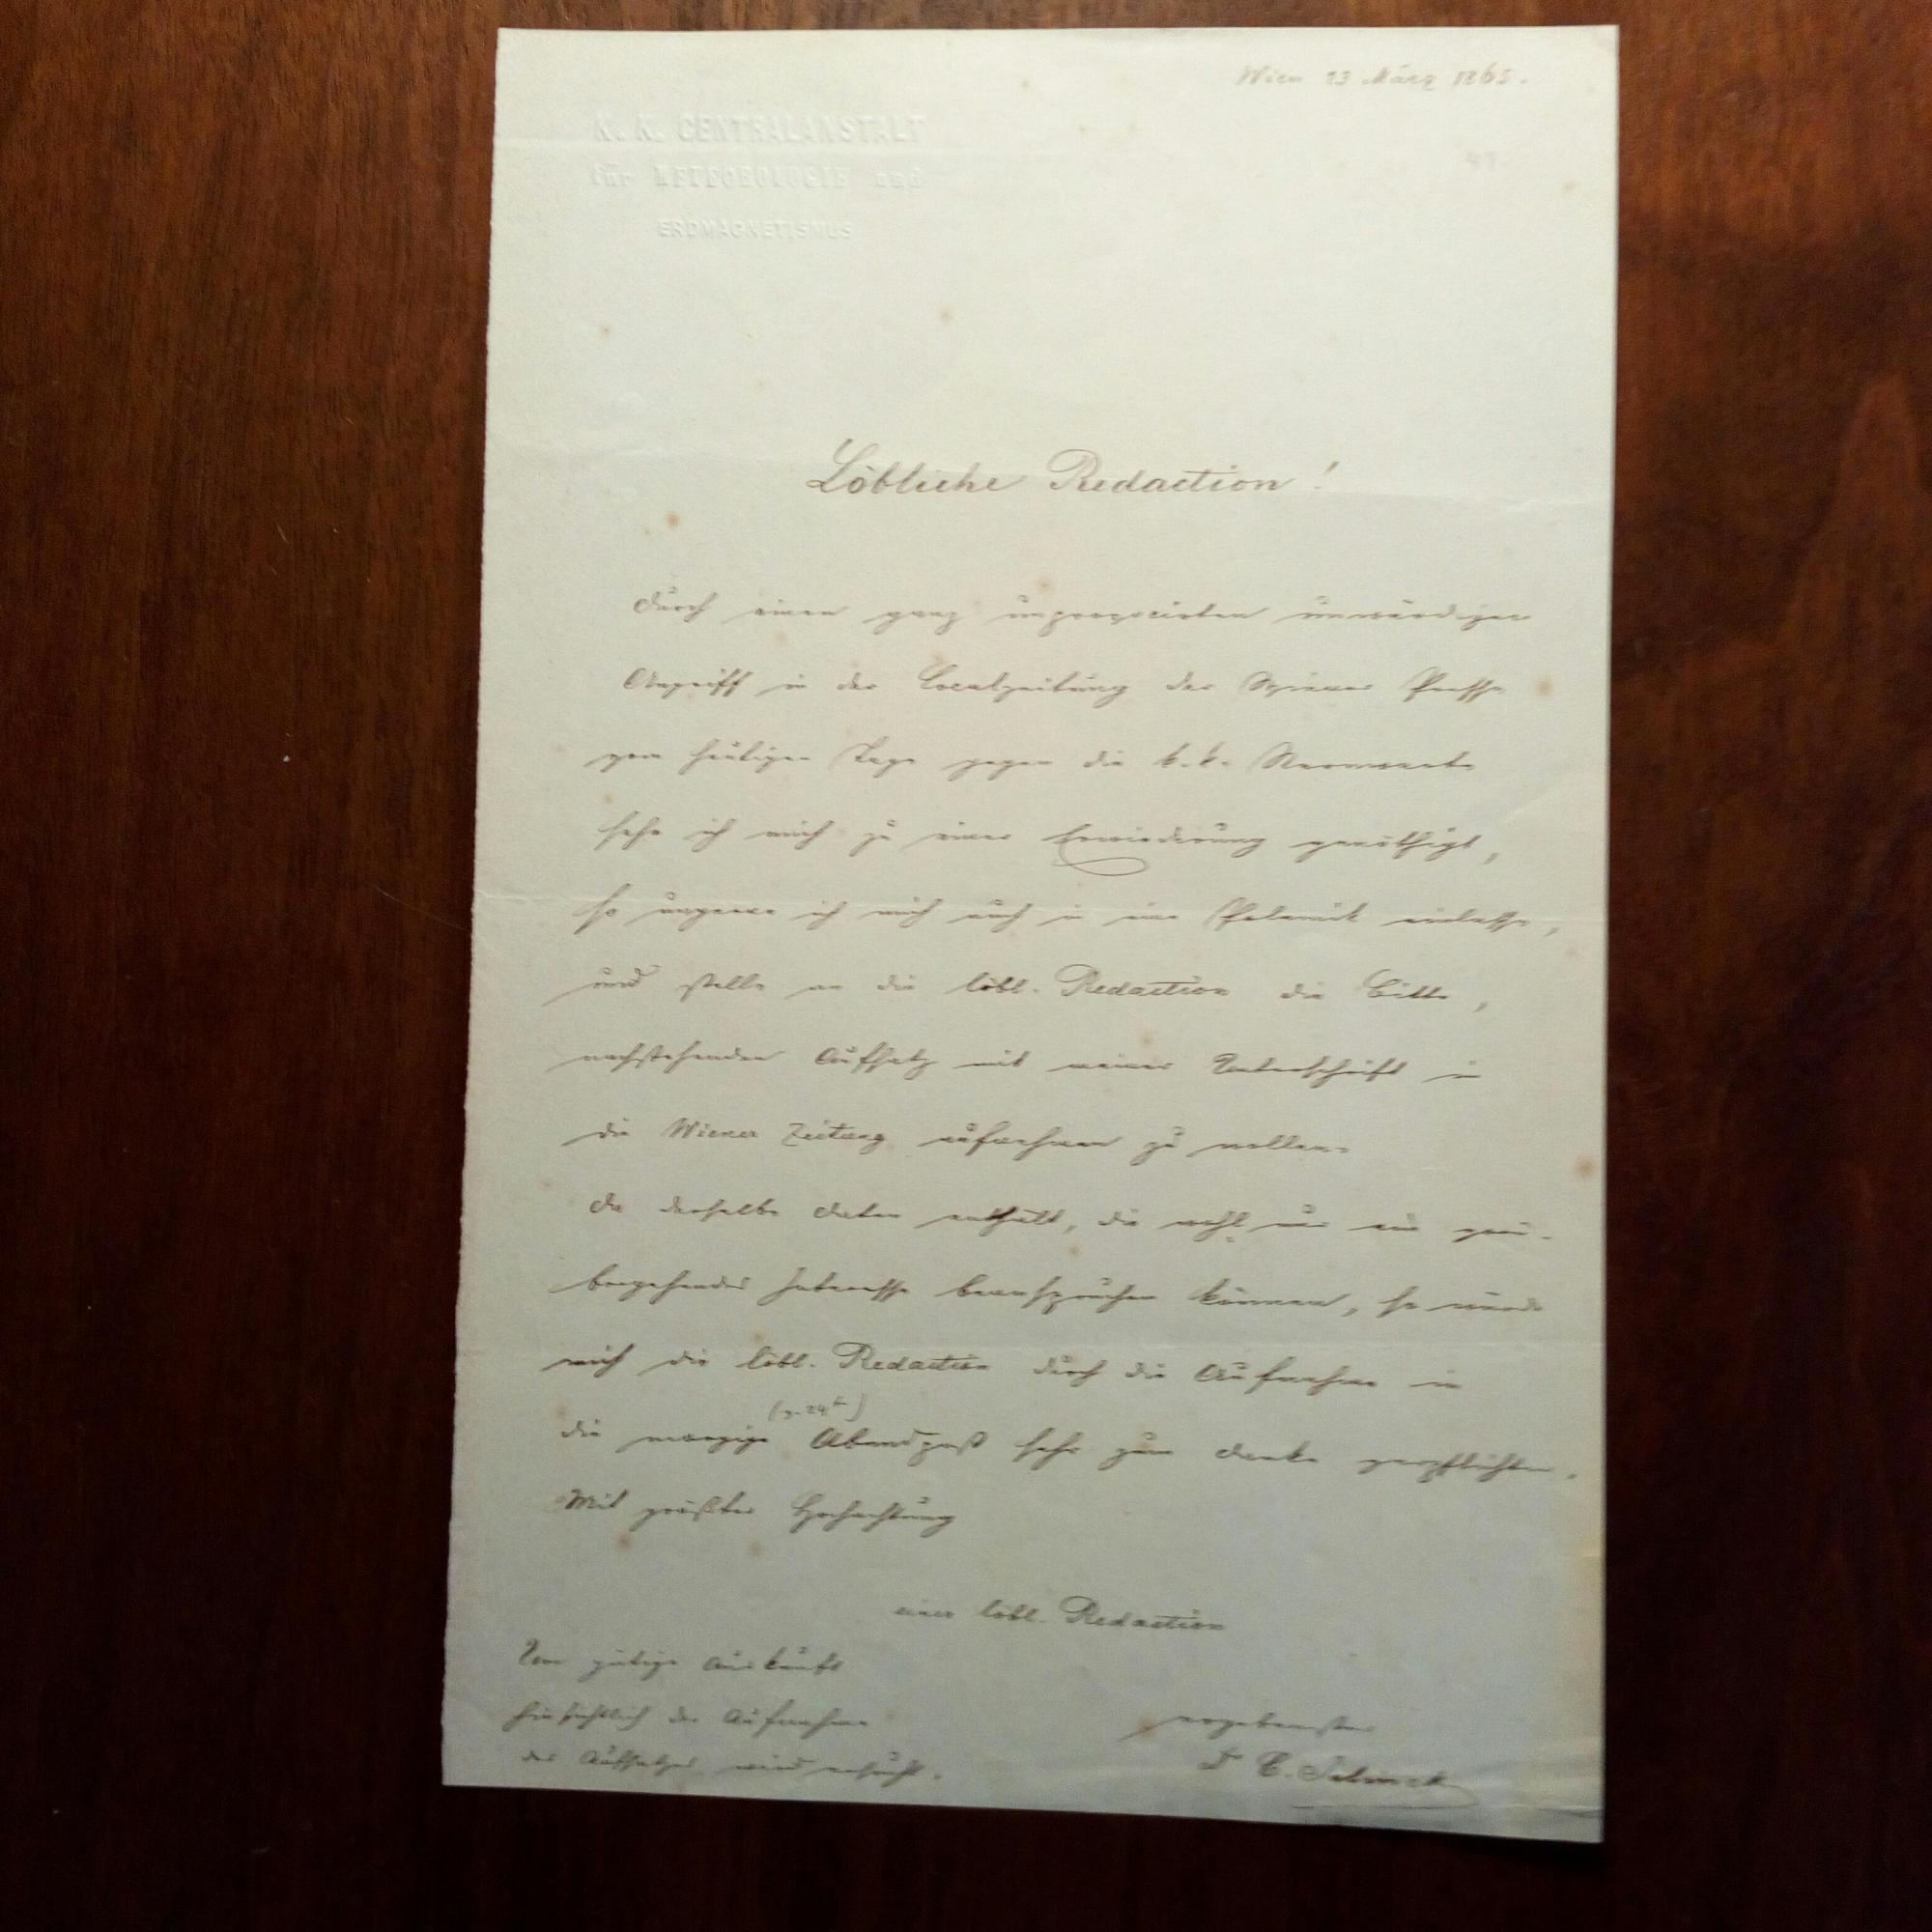 Wien 23 März 1865.
K. K. CENTRALANSTALT
für METEOROLOGIE und
ERDMAGNETISMUS
Löbliche Redaction!
Durch einen ganz unprovocirten unwürdigen
Angriff in der Localzeitung der Wiener Presse
vom heutigen Tage gegen die k. k. Sternwarte
sehe ich mich zu einer Erwiederung genöthigt,
so ungerne ich mich auch in eine Polemik einlasse,
und stelle an die löbl. Redaction die Bitte,
nachstehenden Aufsatz mit meiner Unterschrift in
die Wiener Zeitung aufnehmen zu wollen.
Da derselbe Daten enthält, die wohl nur ein vorü-
bergehendes Interesse beanspruchen können, so würde
mich die löbl. Redaction durch die Aufnahme in
(v. 24t)
die morgige Abendpost sehr zum Danke verpflichten.
Mit größter Hochachtung
einer löbl. Redaction
Um gütige Auskunft
hinsichtlich der Aufnahme
des Aufsatzes wird ersucht.
ergebenster
Dr C. Jelinek